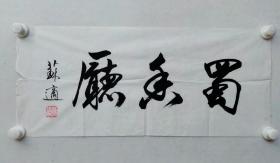 蜀香廳
蘇適